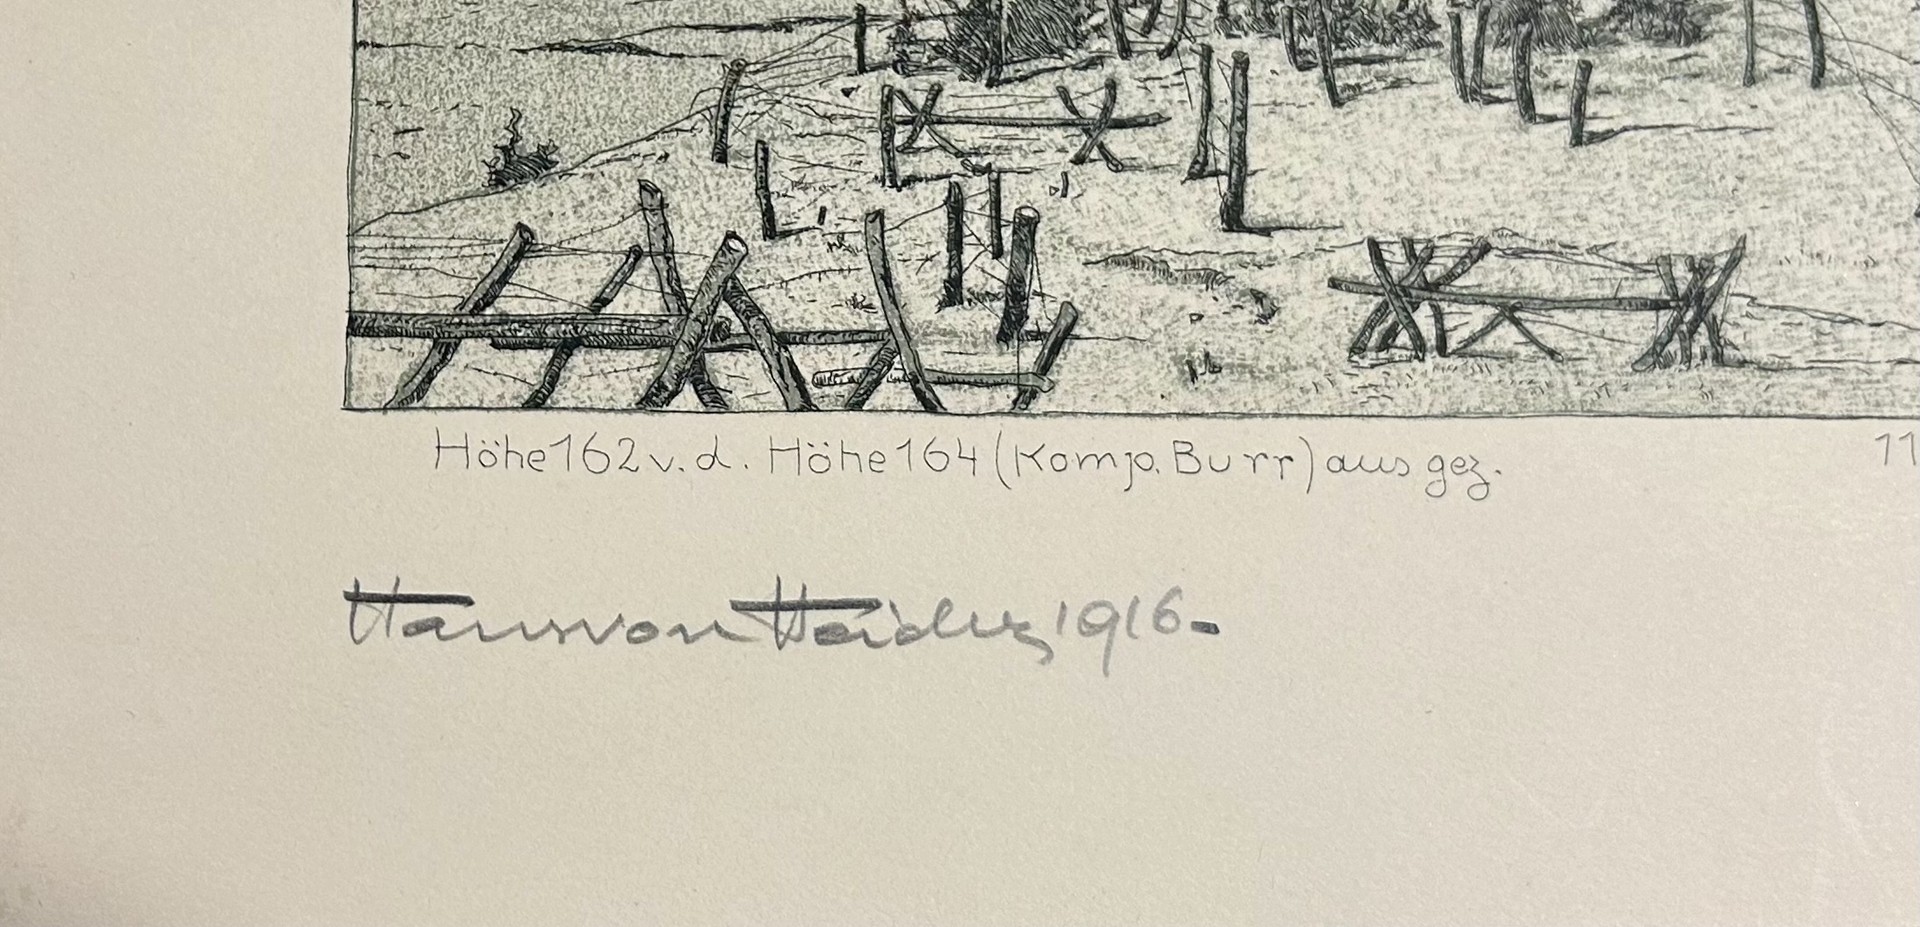 Höhe 162 v. d. Höhe 164 (Komp. Burr) aus gez. 11
Hans von Heider 1916.